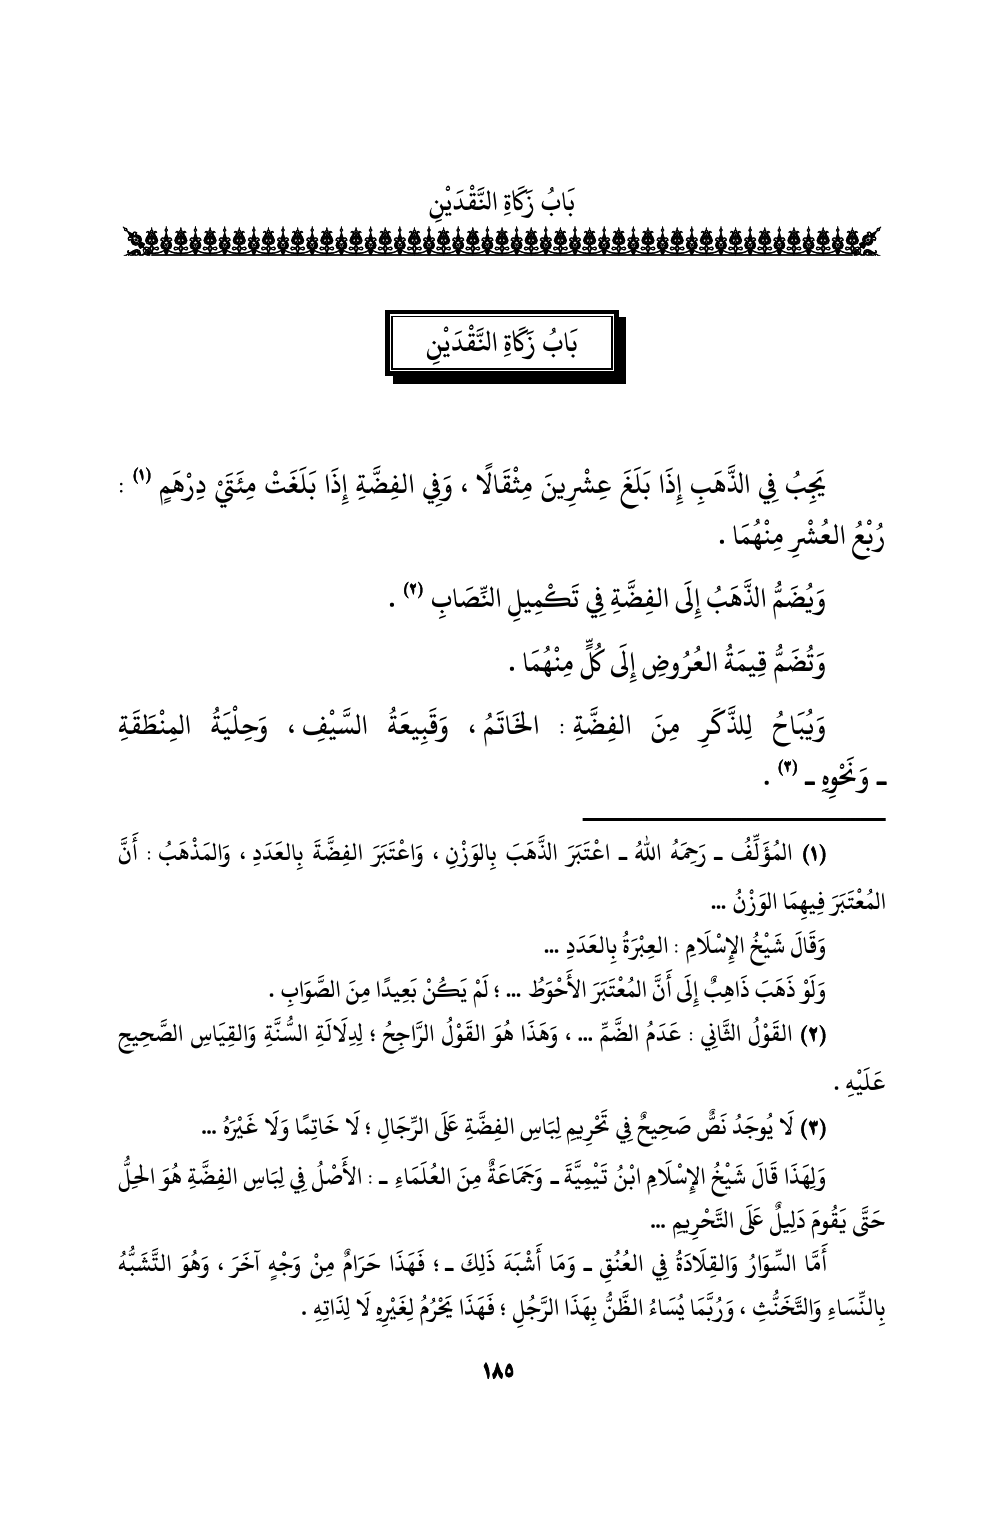 بَابُ زَكَاةِ النَّقْدَيْنِ
بَابُ زَكَاةِ النَّقْدَيْنِ
يَجِبُ فِي الذَّهَبِ إِذَا بَلَغَ عِشْرِينَ مِثْقَالًا ، وَفِي الفِضَّةِ إِذَا بَلَغَتْ مِئَتَيْ دِرْهَمٍ (١) :
رُبْعُ العُشْرِ مِنْهُمَا .
وَيُضَمُّ الذَّهَبُ إِلَى الفِضَّةِ فِي تَكْمِيلِ النِّصَابِ (٢) .
وَتُضَمُّ قِيمَةُ العُرُوضِ إِلَى كُلٍّ مِنْهُمَا .
وَيُبَاحُ لِلذَّكَرِ مِنَ الفِضَّةِ : الخَاتَمُ ، وَقَبِيعَةُ السَّيْفِ ، وَحِلْيَةُ المِنْطَقَةِ
ـ وَنَحْوِهِ ـ (٣) .
(١) المُؤَلِّفُ ـ رَحِمَهُ اللهُ ـ اعْتَبَرَ الذَّهَبَ بِالوَزْنِ ، وَاعْتَبَرَ الفِضَّةَ بِالعَدَدِ ، وَالمَذْهَبُ : أَنَّ
المُعْتَبَرَ فِيهِمَا الوَزْنُ ...
وَقَالَ شَيْخُ الإِسْلَامِ : العِبْرَةُ بِالعَدَدِ ...
وَلَوْ ذَهَبَ ذَاهِبٌ إِلَى أَنَّ المُعْتَبَرَ الأَحْوَطُ ... ؛ لَمْ يَكُنْ بَعِيدًا مِنَ الصَّوَابِ .
(٢) القَوْلُ الثَّانِي : عَدَمُ الضَّمِّ ... ، وَهَذَا هُوَ القَوْلُ الرَّاجِحُ ؛ لِدِلَالَةِ السُّنَّةِ وَالقِيَاسِ الصَّحِيحِ
عَلَيْهِ .
(٣) لَا يُوجَدُ نَصٌّ صَحِيحٌ فِي تَحْرِيمِ لِبَاسِ الفِضَّةِ عَلَى الرِّجَالِ ؛ لَا خَاتِمًا وَلَا غَيْرَهُ ...
وَلِهَذَا قَالَ شَيْخُ الإِسْلَامِ ابْنُ تَيْمِيَّةَ ـ وَجَمَاعَةٌ مِنَ العُلَمَاءِ ـ : الأَصْلُ فِي لِبَاسِ الفِضَّةِ هُوَ الحِلُّ
حَتَّى يَقُومَ دَلِيلٌ عَلَى التَّحْرِيمِ ...
أَمَّا السِّوَارُ وَالقِلَادَةُ فِي العُنُقِ ـ وَمَا أَشْبَهَ ذَلِكَ ـ ؛ فَهَذَا حَرَامٌ مِنْ وَجْهٍ آخَرَ ، وَهُوَ التَّشَبُّهُ
بِالنِّسَاءِ وَالتَّخَنُّثِ ، وَرُبَّمَا يُسَاءُ الظَّنُّ بِهَذَا الرَّجُلِ ؛ فَهَذَا يَحْرُمُ لِغَيْرِهِ لَا لِذَاتِهِ .
١٨٥